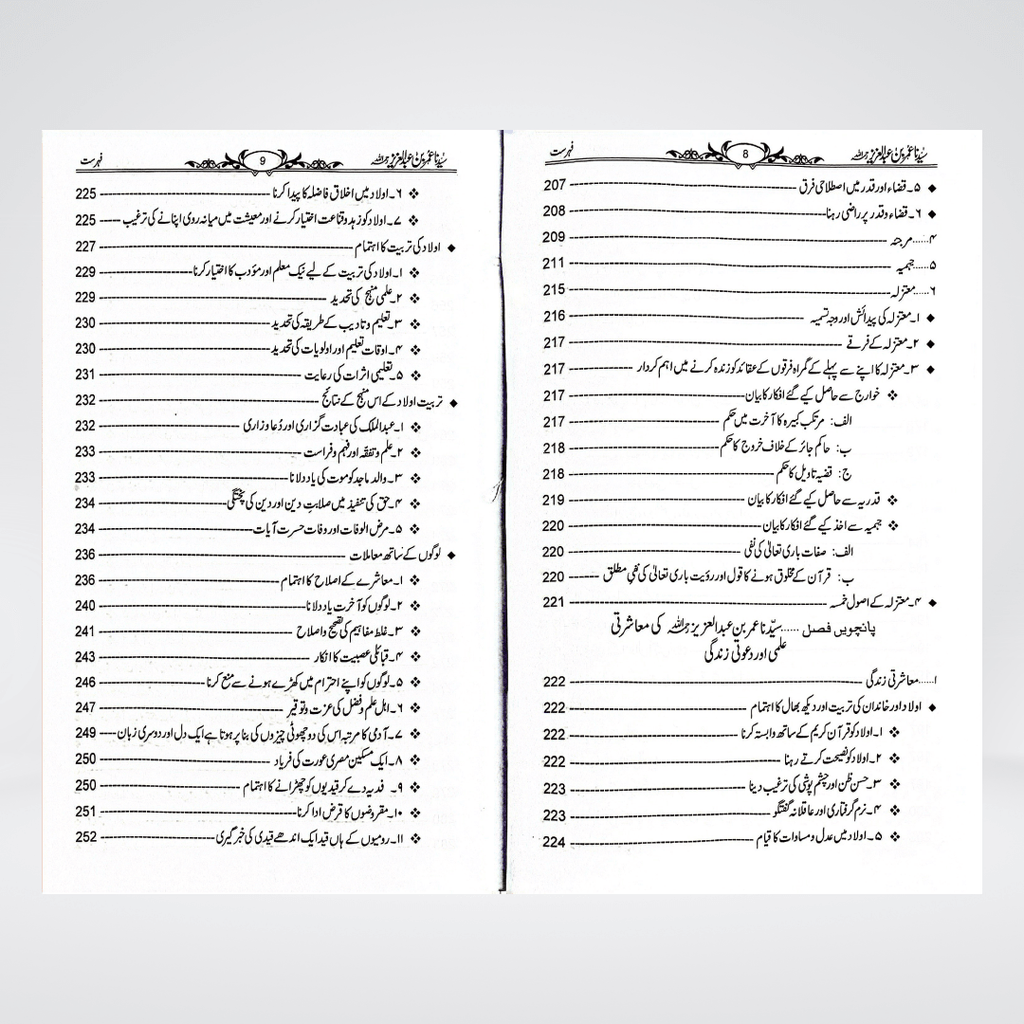 سیّدنا عمر بن عبدالعزیز رحمہ اللہ 8 فہرست
◆ ۵۔ قضاء اور قدر میں اصطلاحی فرق 207
◆ ۶۔ قضاء و قدر پر راضی رہنا 208
۴...... مرجئہ 209
۵...... جہمیہ 211
۶...... معتزلہ 215
◆ ۱۔ معتزلہ کی پیدائش اور وجہ تسمیہ 216
◆ ۲۔ معتزلہ کے فرقے 217
◆ ۳۔ معتزلہ کا اپنے سے پہلے کے گمراہ فرقوں کے عقائد کو زندہ کرنے میں اہم کردار 217
❖ خوارج سے حاصل کیے گئے افکار کا بیان 217
الف: مرتکب کبیرہ کا آخرت میں حکم 217
ب: حاکم جائر کے خلاف خروج کا حکم 218
ج: قضیہ تاویل کا حکم 218
❖ قدریہ سے حاصل کیے گئے افکار کا بیان 219
❖ جہمیہ سے اخذ کیے گئے افکار کا بیان 220
الف: صفات باری تعالیٰ کی نفی 220
ب: قرآن کے مخلوق ہونے کا قول اور رؤیت باری تعالیٰ کی نفی مطلق 220
◆ ۴۔ معتزلہ کے اصول خمسہ 221
پانچویں فصل...... سیّدنا عمر بن عبدالعزیز رحمہ اللہ کی معاشرتی
علمی اور دعوتی زندگی
۱...... معاشرتی زندگی 222
◆ اولاد اور خاندان کی تربیت اور دیکھ بھال کا اہتمام 222
❖ ۱۔ اولاد کو قرآن کریم کے ساتھ وابستہ کرنا 222
❖ ۲۔ اولاد کو نصیحت کرتے رہنا 222
❖ ۳۔ حسن ظن اور چشم پوشی کی ترغیب دینا 223
❖ ۴۔ نرم گرفتاری اور عاقلانہ گفتگو 223
❖ ۵۔ اولاد میں عدل و مساوات کا قیام 224
سیّدنا عمر بن عبدالعزیز رحمہ اللہ 9 فہرست
❖ ۶۔ اولاد میں اخلاق فاضلہ کا پیدا کرنا 225
❖ ۷۔ اولاد کو زہد و قناعت اختیار کرنے اور معیشت میں میانہ روی اپنانے کی ترغیب 225
◆ اولاد کی تربیت کا اہتمام 227
❖ ۱۔ اولاد کی تربیت کے لیے نیک معلم اور مؤدب کا اختیار کرنا 229
❖ ۲۔ علمی منہج کی تحدید 229
❖ ۳۔ تعلیم و تادیب کے طریقہ کی تحدید 230
❖ ۴۔ اوقات تعلیم اور اولویات کی تحدید 230
❖ ۵۔ تعلیمی اثرات کی رعایت 231
◆ تربیت اولاد کے اس منہج کے نتائج 232
❖ ۱۔ عبدالملک کی عبادت گزاری اور دُعا و زاری 232
❖ ۲۔ علم و تفقہ اور فہم و فراست 233
❖ ۳۔ والد ماجد کو موت کی یاد دلانا 233
❖ ۴۔ حق کی تنفیذ میں صلابتِ دین اور دین کی پختگی 234
❖ ۵۔ مرض الوفات اور وفات حسرت آیات 234
◆ لوگوں کے ساتھ معاملات 236
❖ ۱۔ معاشرے کے اصلاح کا اہتمام 236
❖ ۲۔ لوگوں کو آخرت یاد دلانا 240
❖ ۳۔ غلط مفاہیم کی تصحیح و اصلاح 241
❖ ۴۔ قبائلی عصبیت کا انکار 243
❖ ۵۔ لوگوں کو اپنے احترام میں کھڑے ہونے سے منع کرنا 246
❖ ۶۔ اہل علم و فضل کی عزت و توقیر 247
❖ ۷۔ آدمی کا مرتبہ اس کی دو چھوٹی چیزوں کی بنا پر ہوتا ہے ایک دل اور دوسری زبان 249
❖ ۸۔ ایک مسکین مصری عورت کی فریاد 250
❖ ۹۔ فدیہ دے کر قیدیوں کو چھڑانے کا اہتمام 250
❖ ۱۰۔ مقروضوں کا قرض ادا کرنا 251
❖ ۱۱۔ رومیوں کے ہاں قید ایک اندھے قیدی کی خبر گیری 252